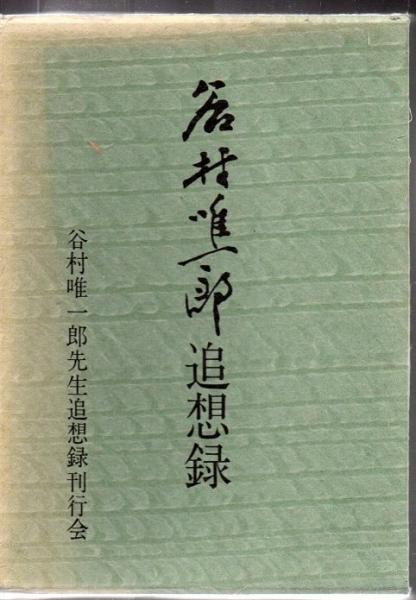 谷村唯一郎追想録
谷村唯一郎先生追想録刊行会